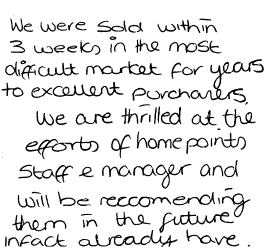 We were sold within
3 weeks in the most
difficult market for years
to excellent purchasers,
We are thrilled at the
efforts of homepoints
staff & manager and
will be reccomending
them in the future
infact already have.